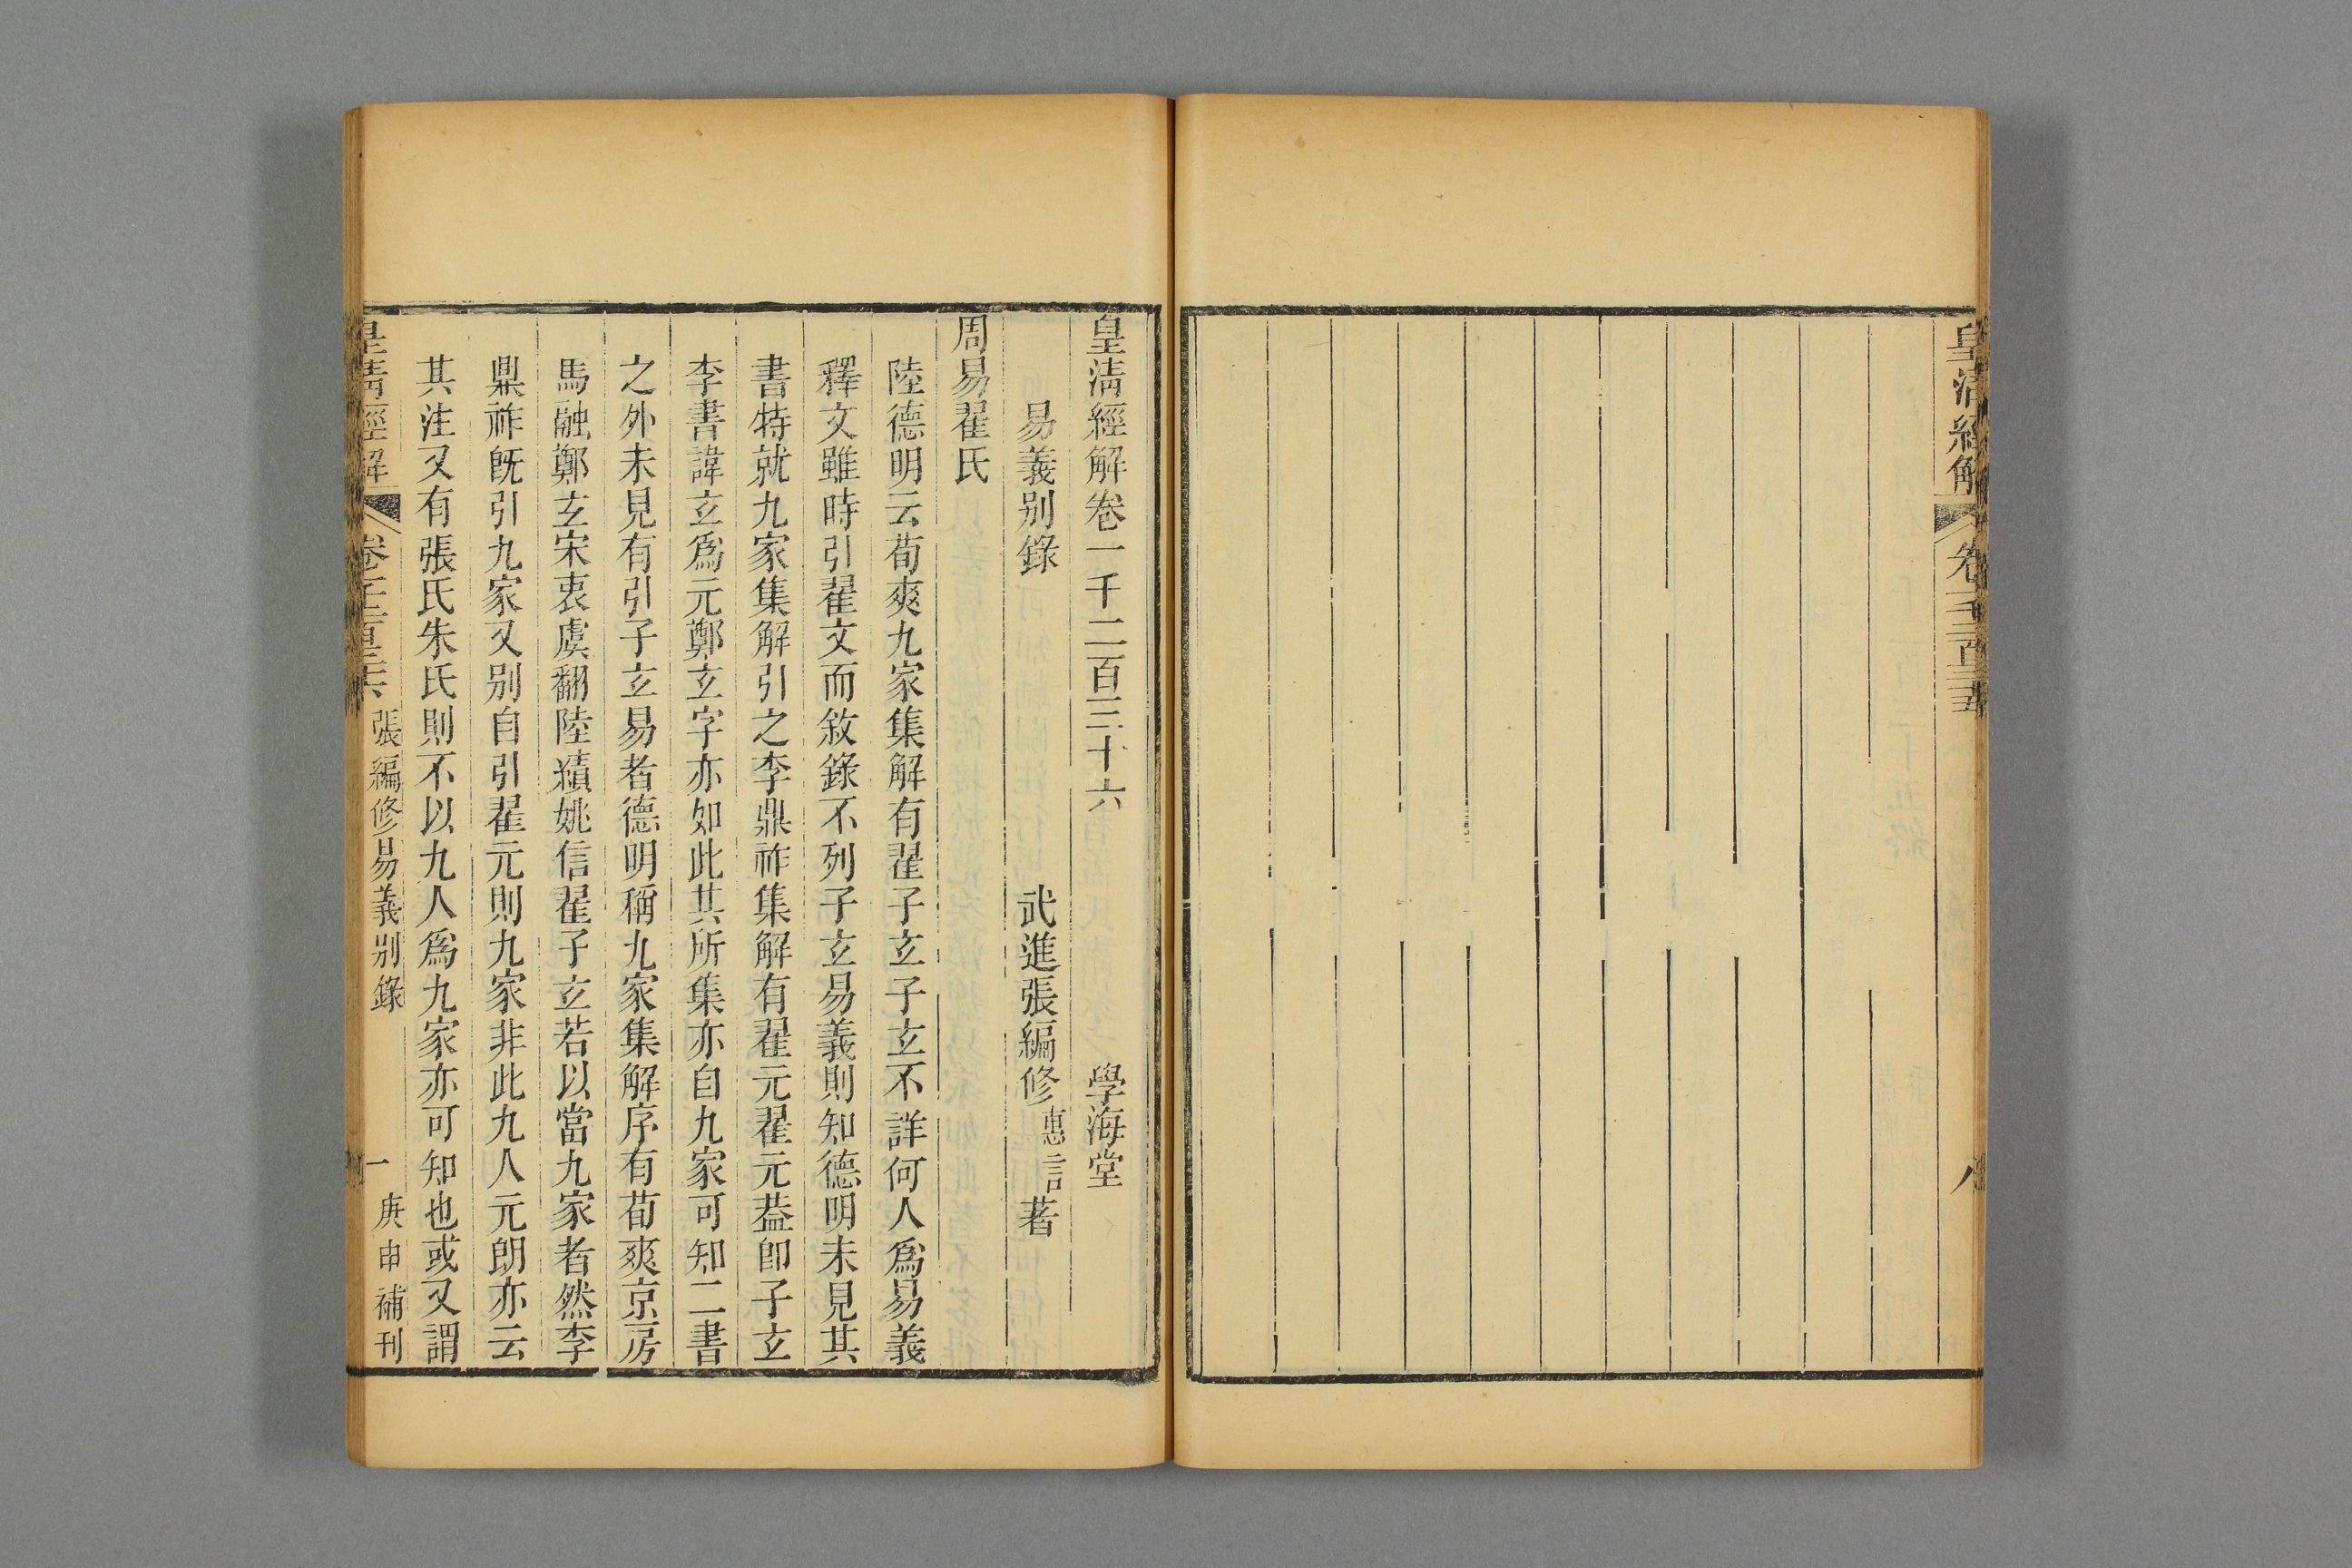 皇清經解
卷一千二百三十五
八
皇清經解卷一千二百三十六
學海堂
易義别錄
武進張編修惠言著
周易翟氏
陸德明云荀爽九家集解有翟子玄子玄不詳何人爲易義
釋文雖時引翟文而敘錄不列子玄易義則知德明未見其
書特就九家集解引之李鼎祚集解有翟元翟元葢卽子玄
李書諱玄爲元鄭玄字亦如此其所集亦自九家可知二書
之外未見有引子玄易者德明稱九家集解序有荀爽京房
馬融鄭玄宋衷虞翻陸績姚信翟子玄若以當九家者然李
鼎祚旣引九家又别自引翟元則九家非此九人元朗亦云
其注又有張氏朱氏則不以九人爲九家亦可知也或又謂
皇清經解
卷一千二百三十六
張編修易義别錄
一
庚申補刊